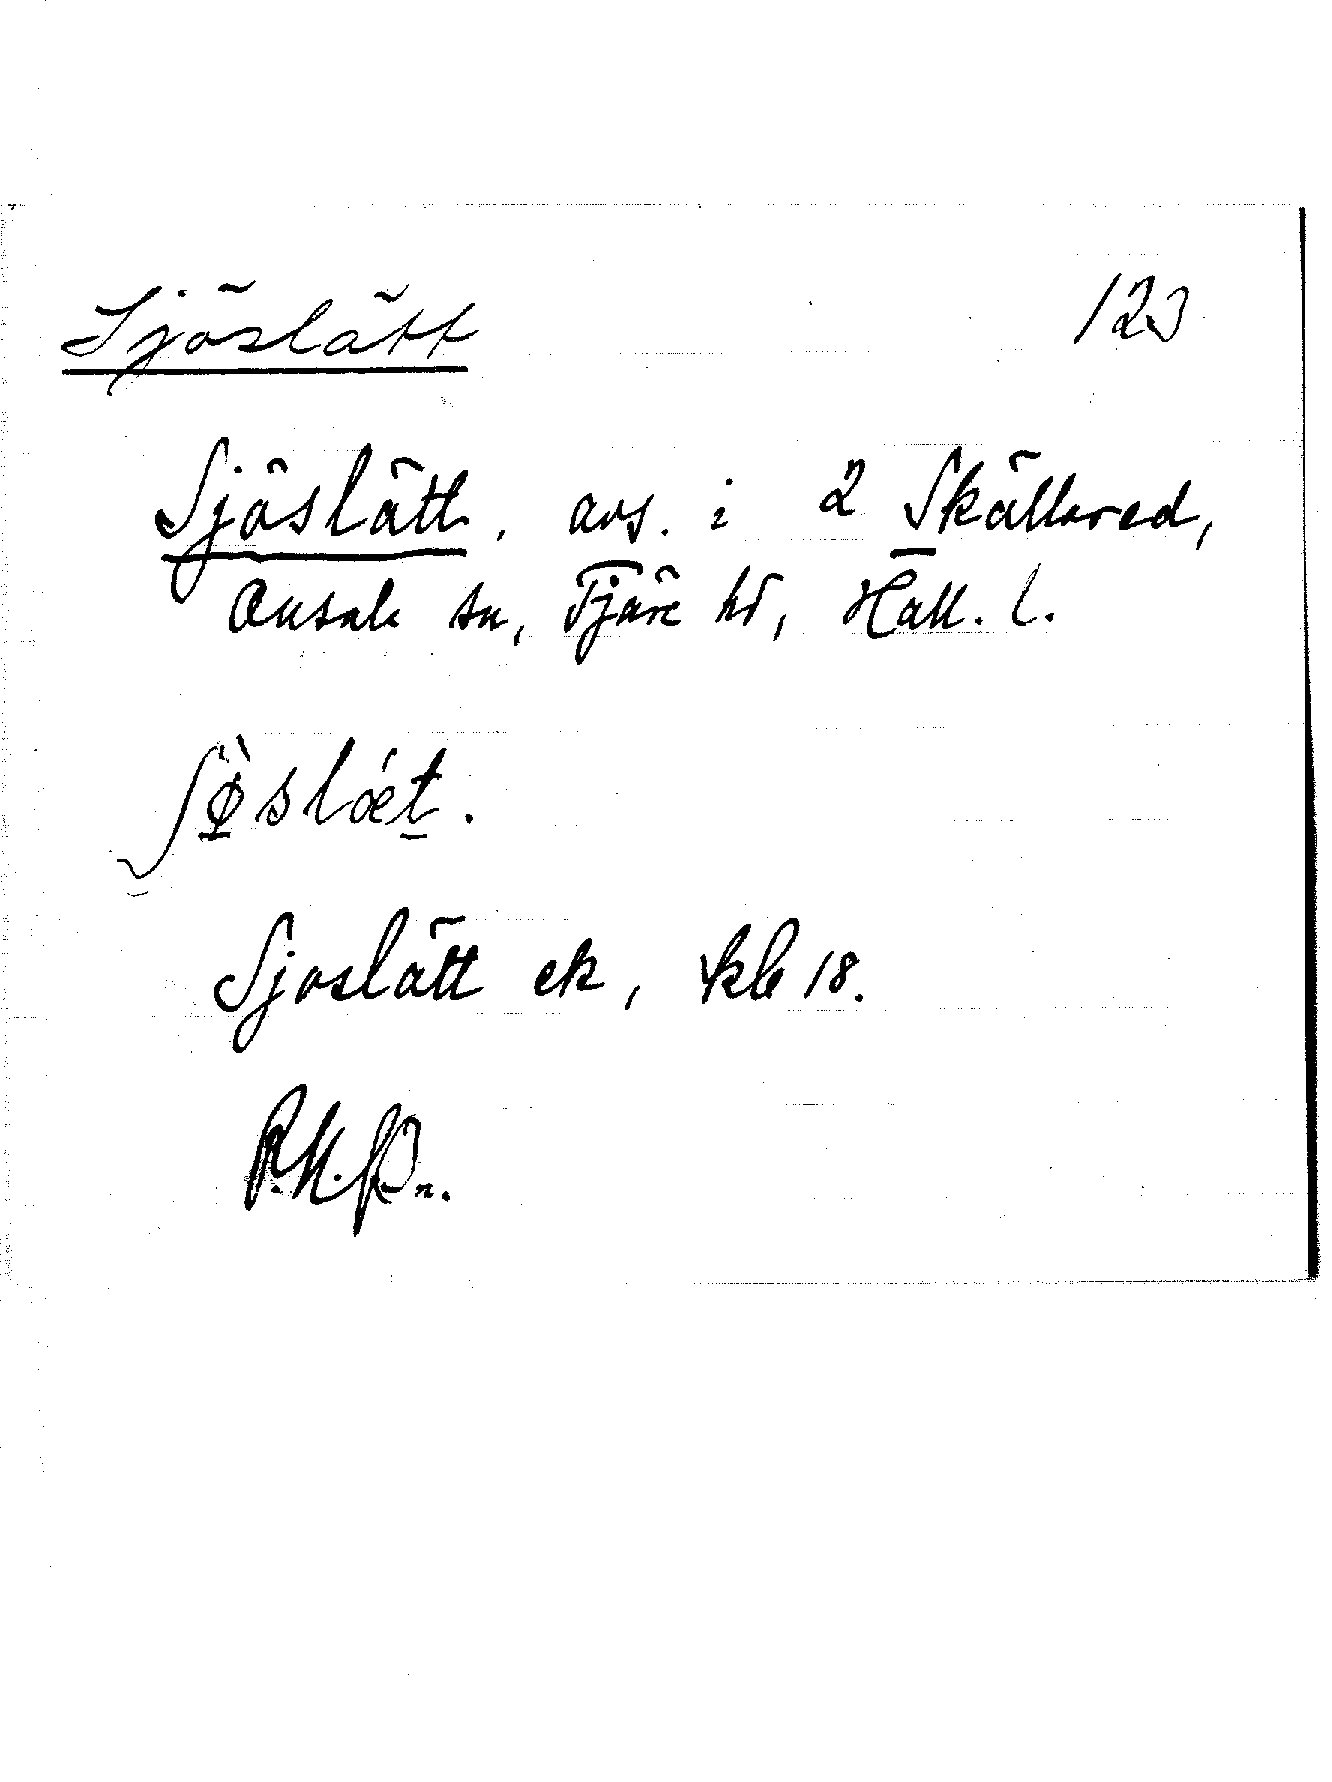 Sjöslätt 123
Sjöslätt, avs. i 2 Skällared,
Onsala sn, Fjäre hd, Hall. l.
ʃø̀slǽt.
Sjöslätt ek, kbl 18.